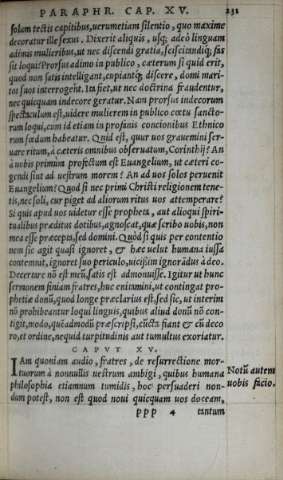 PARAPHR. CAP. XV. 231
solum tectis capitibus, uerumetiam silentio, quo maxime
decoratur ille sexus. Dixerit aliquis, usq; adeò linguam
adimis mulieribus, ut nec discendi gratia, sciscitandiq; fas
sit loqui? Prorsus adimo in publico, cæterum si quid erit,
quod non satis intelligant, cupiantq; discere, domi mari-
tos suos interrogent. Ita fiet, ut nec doctrina fraudentur,
nec quicquam indecore geratur. Nam prorsus indecorum
spectaculum est, uidere mulierem in publico cœtu sancto-
rum loqui, cum id etiam in profanis concionibus Ethnico
rum fœdum habeatur. Quid est, quur nos grauemini ser-
uare ritum, à cæteris omnibus obseruatum, Corinthij? An
à uobis primum profectum est Euangelium, ut cæteri co-
gendi sint ad uestrum morem? An ad uos solos peruenit
Euangelium? Quod si nec primi Christi religionem tene-
tis, nec soli, cur piget ad aliorum ritus uos attemperare?
Si quis apud uos uidetur esse propheta, aut alioqui spiri-
tualibus præditus dotibus, agnoscat, quæ scribo uobis, non
mea esse præcepta, sed domini. Quòd si quis per contentio
nem sic agit quasi ignoret, & hæc uelut humana iussa
contemnat, ignoret suo periculo, uicissim ignorãdus à deo.
Decertare nõ est meũ, satis est admonuisse. Igitur ut hunc
sermonem finiam fratres, huc enitimini, ut contingat pro-
phetiæ donũ, quod longe præclarius est, sed sic, ut interim
nõ prohibeantur loqui linguis, quibus aliud donũ nõ con-
tigit, modo, quẽadmodũ præscripsi, cũcta fiant & cũ deco
ro, et ordine, nequid turpitudinis aut tumultus exoriatur.
CAPVT XV.
IAm quondam audio, fratres, de resurrectione mor-
tuorum à nonnullis uestrum ambigi, quibus humana
philosophia etiamnum tumidis, hoc persuaderi non-
dum potest, non est quod noui quicquam uos doceam,
Notũ autem
uobis facio.
ppp 4 tantum